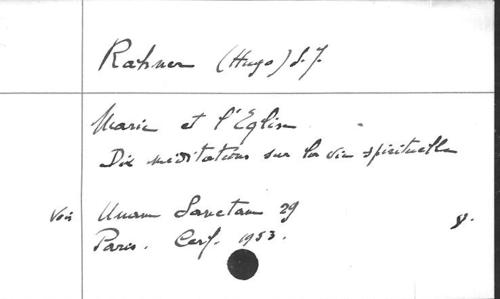 Rahner (Hugo) S.J.
Marie et l'Église
Dix méditations sur la vie spirituelle
Voir Unam Sanctam 29
Paris. Cerf. 1953.